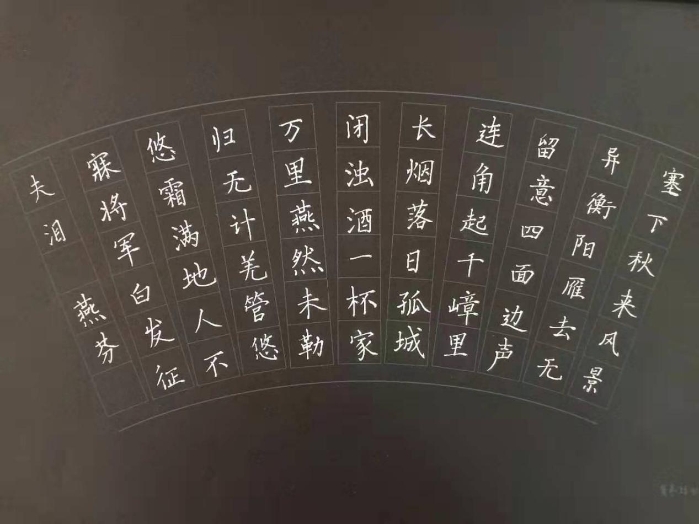 塞下秋来风景
异衡阳雁去无
留意四面边声
连角起千嶂里
长烟落日孤城
闭浊酒一杯家
万里燕然未勒
归无计羌管悠
悠霜满地人不
寐将军白发征
夫泪 燕芬